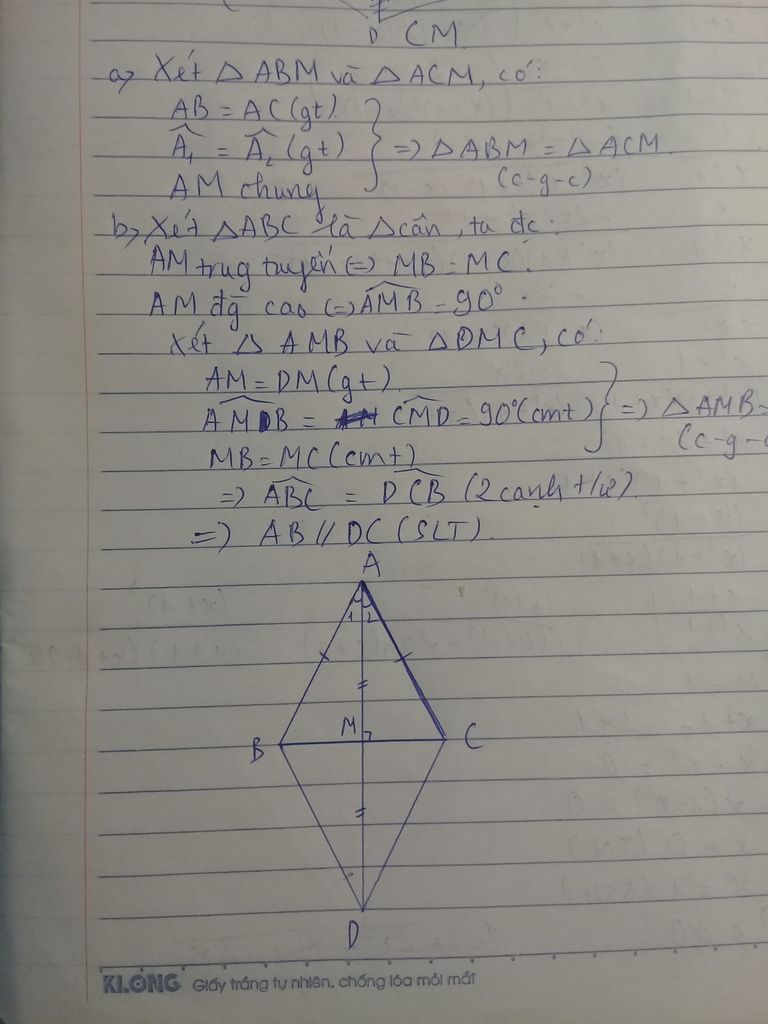 D CM
a, Xét △ ABM và △ ACM, có:
AB = AC (gt)
Â₁ = Â₂ (gt) } => △ ABM = △ ACM
AM chung (c-g-c)
b, Xét △ABC là △cân, ta đc:
AM trug tuyến (=> MB = MC.
AM đg cao (=> \widehat{AMB} = 90°.
Xét △ AMB và △DMC, có:
AM = DM (gt)
\widehat{AMB} = \widehat{CMD} = 90° (cmt) } => △ AMB =
MB = MC (cmt) (c-g-c
=> \widehat{ABC} = \widehat{DCB} (2 cạnh t/ư)
=> AB // DC (SLT).
A
1 2
B M C
D
KLONG Giấy trắng tự nhiên, chống lóa mỏi mắt